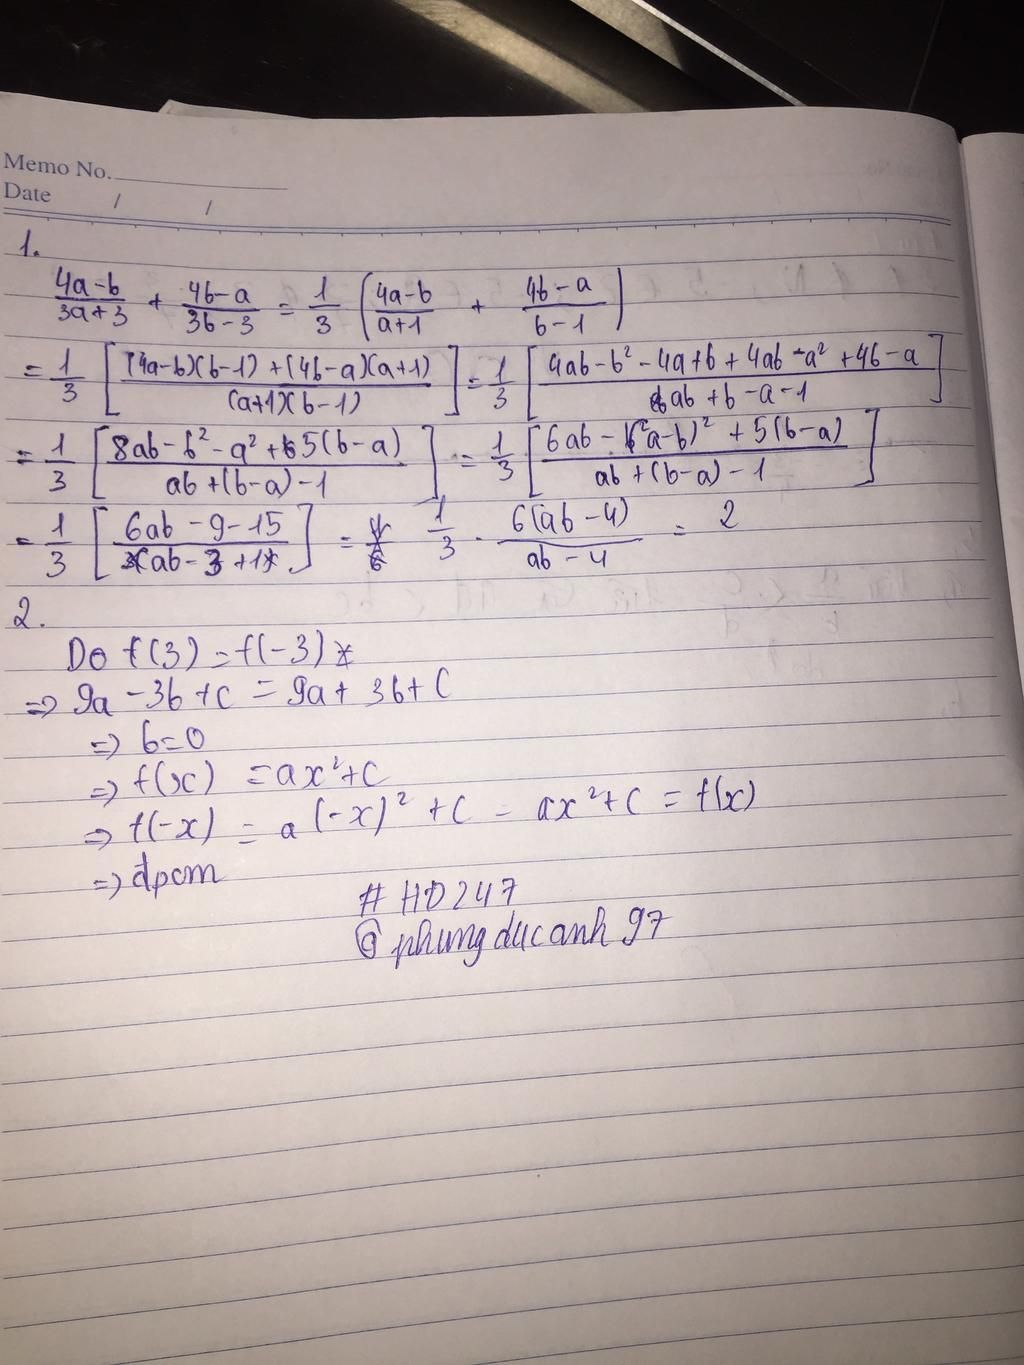 Memo No.
Date / /
1.
(4a-b)/(3a+3) + (4b-a)/(3b-3) = 1/3 ((4a-b)/(a+1) + (4b-a)/(b-1))
= 1/3 [((4a-b)(b-1)+(4b-a)(a+1))/((a+1)(b-1))] = 1/3 [(4ab-b²-4a+b+4ab-a²+4b-a)/(ab+b-a-1)]
= 1/3 [(8ab-b²-a²+5(b-a))/(ab+(b-a)-1)] = 1/3 [(6ab-(a-b)²+5(b-a))/(ab+(b-a)-1)]
= 1/3 [(6ab-9-15)/(ab-3+1)] = 1/3 . 6(ab-4)/(ab-4) = 2
2.
Do f(3)=f(-3)
=> 9a-3b+c=9a+3b+c
=> b=0
=> f(x) =ax²+c
=> f(-x) = a(-x)²+c = ax²+c = f(x)
=> dpcm
#HD247
@phungducanh97